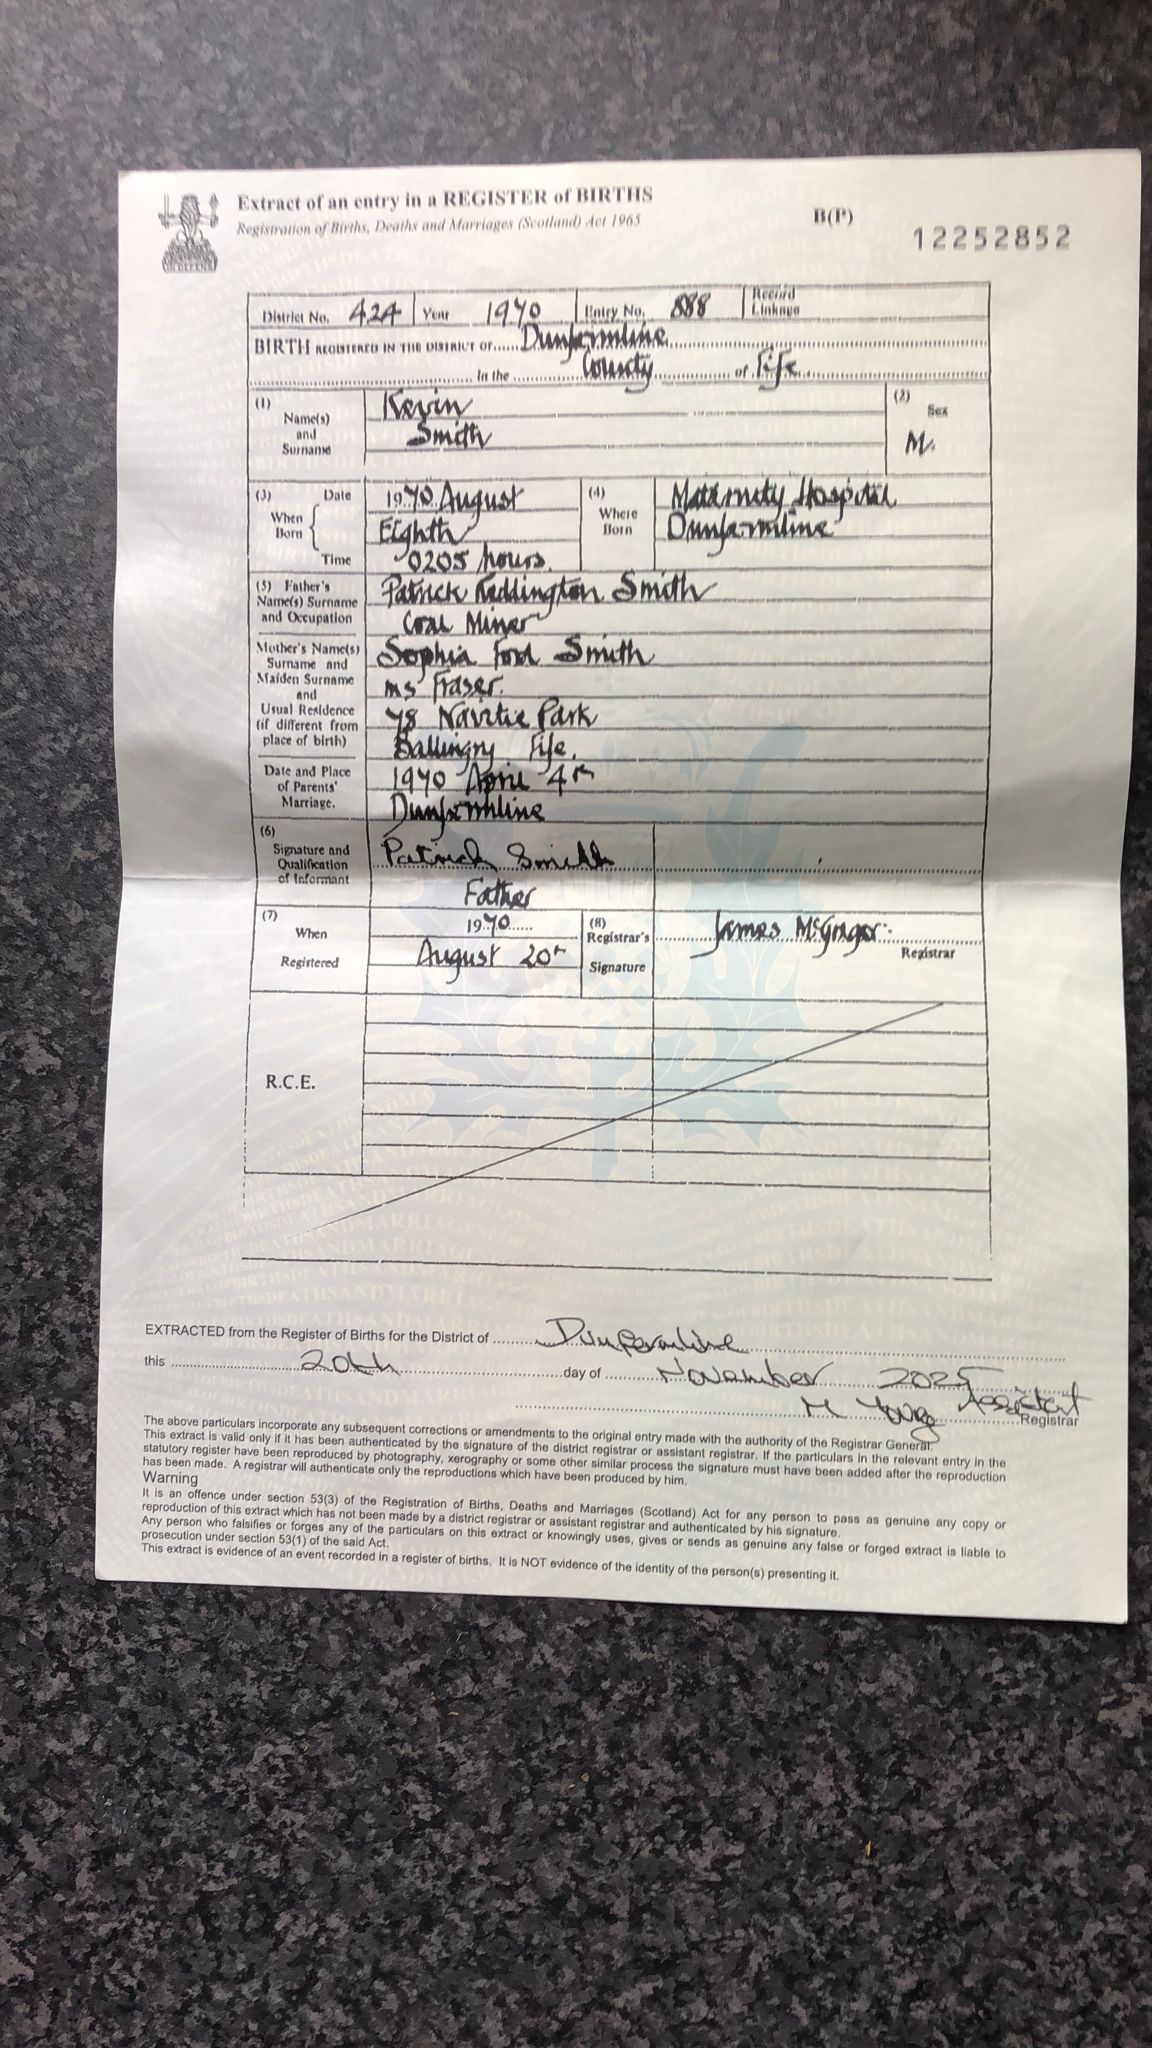 Extract of an entry in a REGISTER of BIRTHS
Registration of Births, Deaths and Marriages (Scotland) Act 1965
B(P)
12252852
District No. 424 Year 1970 Entry No. 888 Record Linkage
BIRTH REGISTERED IN THE DISTRICT OF Dunfermline
In the County of Fife
(1) Name(s) and Surname
Kevin
Smith
(2) Sex
M.
(3) When Born Date
1970 August
Eighth
Time 0205 hours.
(4) Where Born
Maternity Hospital
Dunfermline
(5) Father's Name(s) Surname and Occupation
Patrick Reddington Smith
Coal Miner
Mother's Name(s) Surname and Maiden Surname and
Sophia Ford Smith
ms Fraser.
Usual Residence (if different from place of birth)
78 Navitie Park
Ballingry Fife.
Date and Place of Parents' Marriage.
1970 April 4th
Dunfermline
(6) Signature and Qualification of Informant
Patrick Smith
Father
(7) When Registered
1970
August 20th
(8) Registrar's Signature
James McGregor
Registrar
R.C.E.
EXTRACTED from the Register of Births for the District of Dunfermline
this 20th day of November 2025
M Young Assistant Registrar
The above particulars incorporate any subsequent corrections or amendments to the original entry made with the authority of the Registrar General.
This extract is valid only if it has been authenticated by the signature of the district registrar or assistant registrar. If the particulars in the relevant entry in the
statutory register have been reproduced by photography, xerography or some other similar process the signature must have been added after the reproduction
has been made. A registrar will authenticate only the reproductions which have been produced by him.
Warning
It is an offence under section 53(3) of the Registration of Births, Deaths and Marriages (Scotland) Act for any person to pass as genuine any copy or
reproduction of this extract which has not been made by a district registrar or assistant registrar and authenticated by his signature.
Any person who falsifies or forges any of the particulars on this extract or knowingly uses, gives or sends as genuine any false or forged extract is liable to
prosecution under section 53(1) of the said Act.
This extract is evidence of an event recorded in a register of births. It is NOT evidence of the identity of the person(s) presenting it.